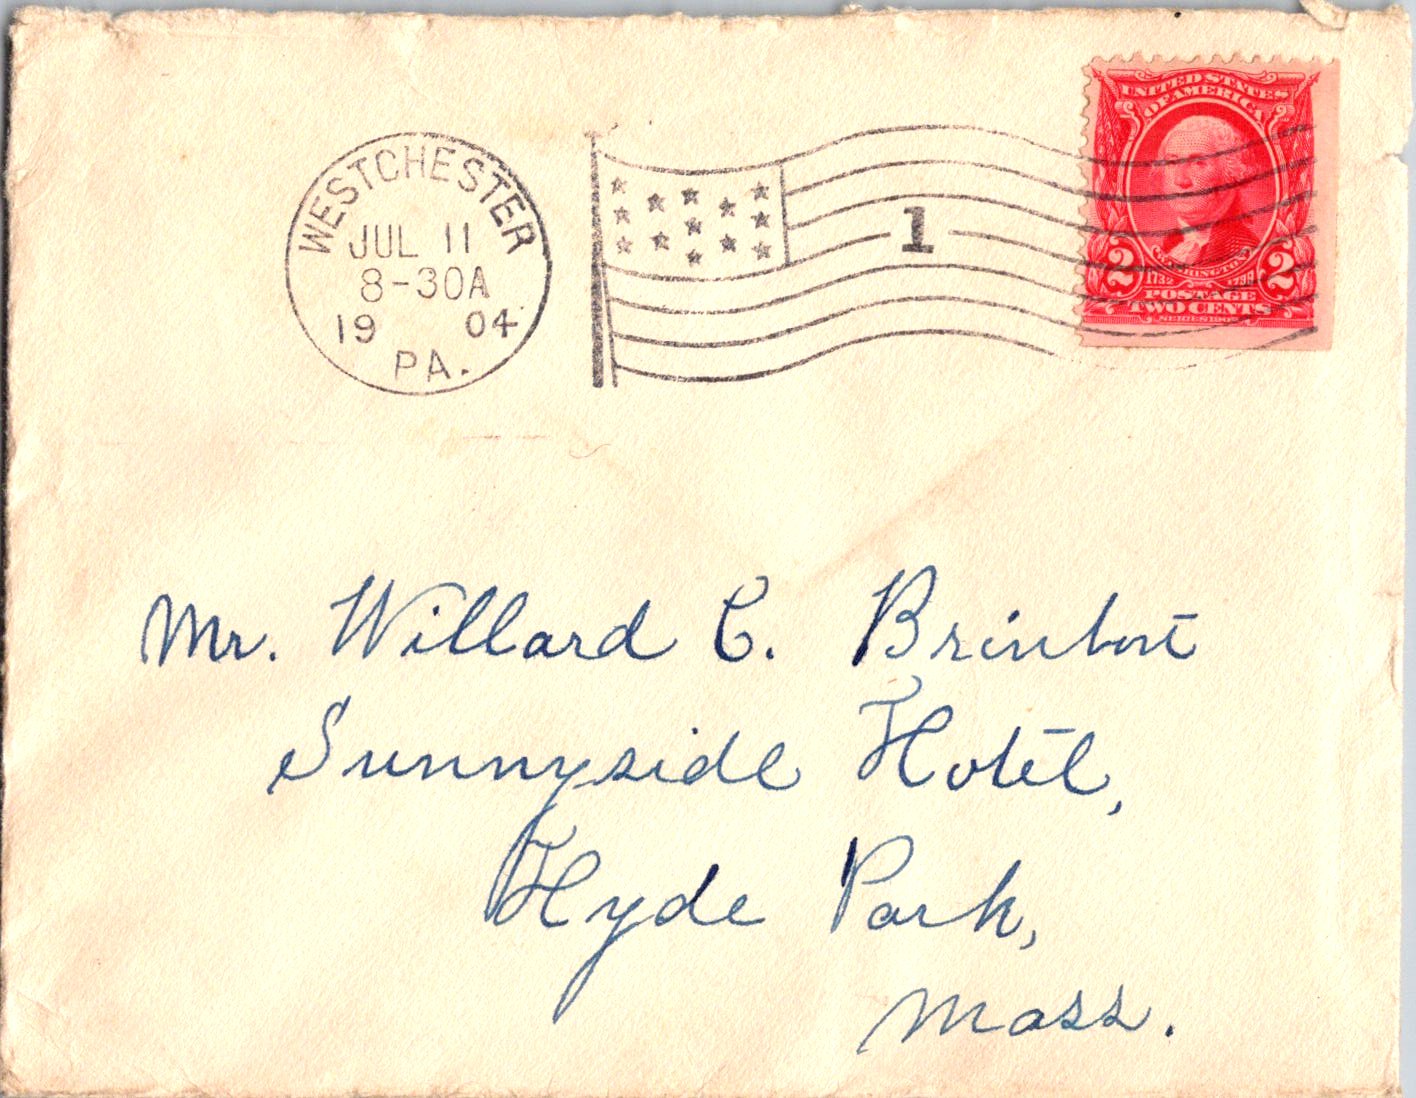 WESTCHESTER
JUL 11
8-30A
19 04
PA.
1
UNITED STATES
OF AMERICA
WASHINGTON
1732 1799
2 2
POSTAGE
TWO CENTS
Mr. Willard C. Brinton
Sunnyside Hotel,
Hyde Park,
Mass.